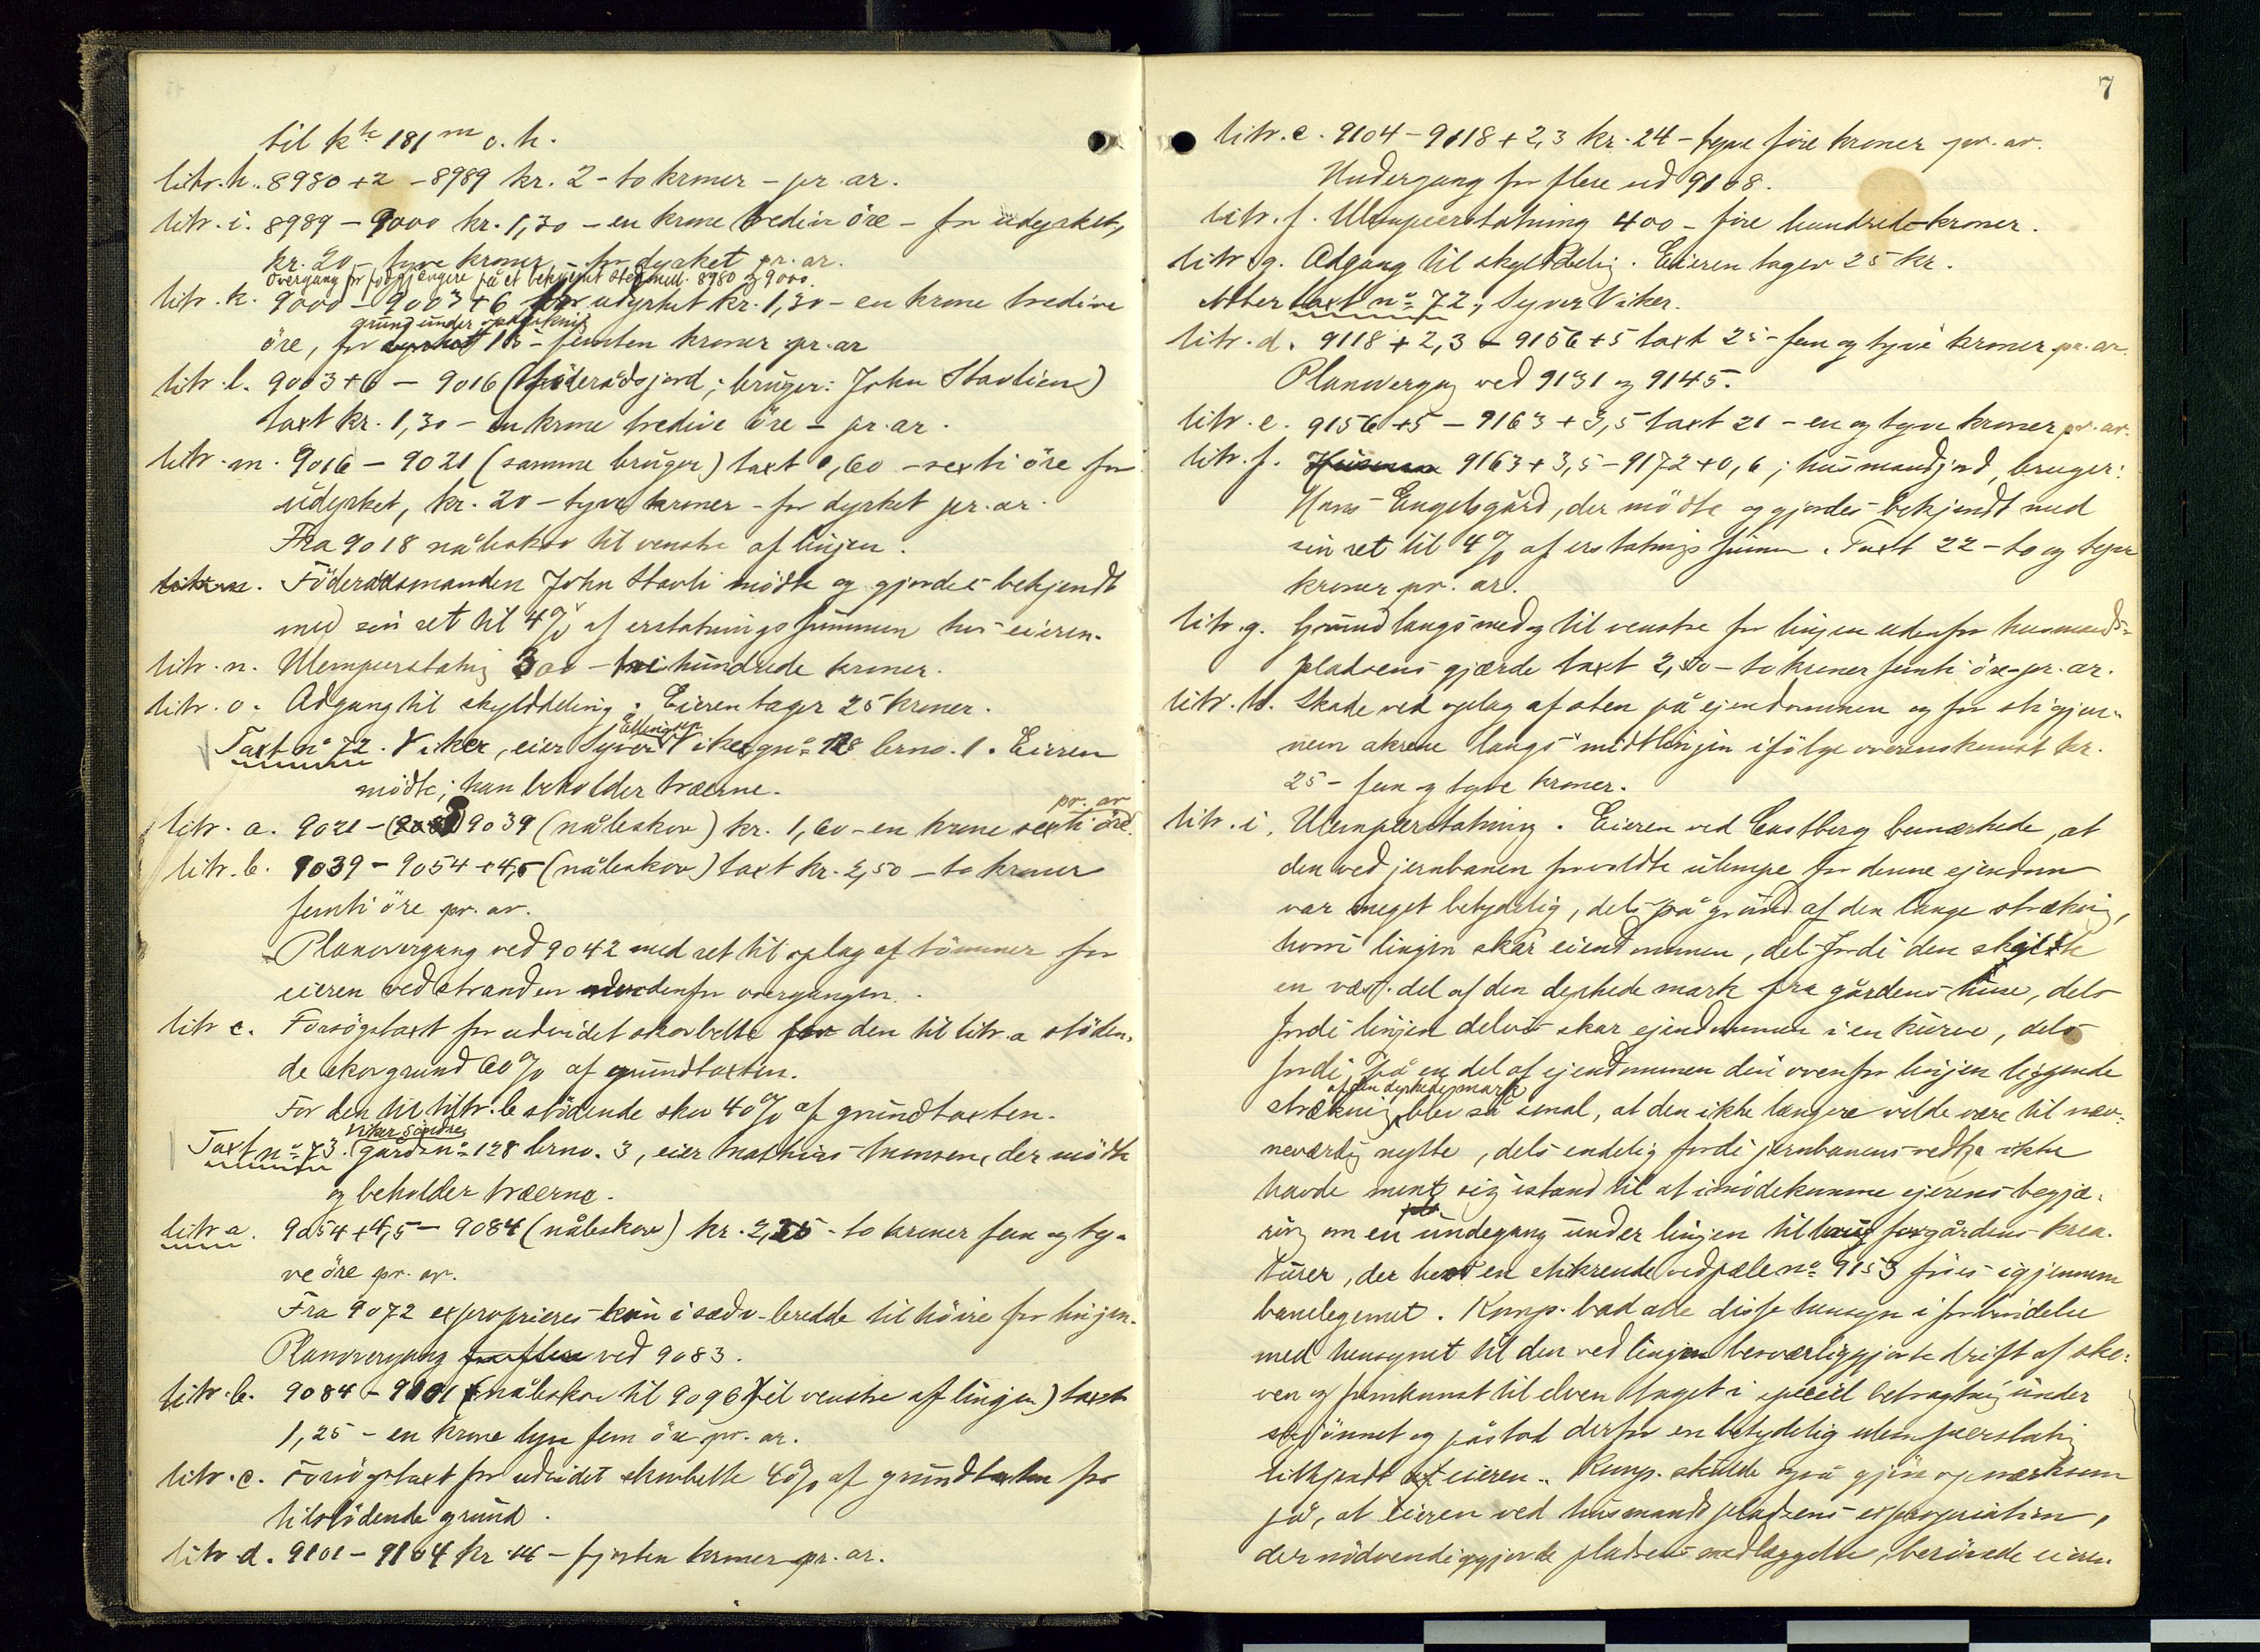 til kte 181 m o. h.
litr. h. 8980 +2 - 8989 kr. 2 - to kroner - pr. ar.
litr. i. 8989 - 9000 kr. 1,30 - en krone tredive öre - for udyrket,
kr. 20 - tyve kroner - for dyrket pr. ar.
Overgang for fodgjængere på et bekvemt sted mell. 8980 og 9000.
litr. k. 9000 - 9003 +6 for udyrket kr. 1,30 - en krone tredive
grund under opdyrkning
öre, for dyrket 15 - femten kroner pr. ar
litr. l. 9003 +6 - 9016 (föderådsjord; bruger: John Stavlien)
taxt kr. 1,30 - en krone tredive öre - pr. ar.
litr. m. 9016 - 9021 (samme bruger) taxt 0,60 - sexti öre for
udyrket, kr. 20 - tyve kroner - for dyrket pr. ar.
Fra 9018 nåleskov til venstre af linjen.
litr. n. Föderådsmanden John Stavli mödte og gjordes bekjendt
med sin ret til 4% af erstatningssummen hos eieren.
litr. n. Ulemperstatnig 300 - tre hundrede kroner.
litr. o. Adgang til skylddeling. Eieren tager 25 kroner.
Ellingsen
Taxt no 72. Viker, eier Syver Viker gno 128 brno. 1. Eieren
mödte; han beholder træerne.
pr. ar
litr. a. 9021 - 9039 (nåleskov) kr. 1,60 - en krone sexti öre.
litr. b. 9039 - 9054 +4,5 (nåleskov) taxt kr. 2,50 - to kroner
femti öre pr. ar.
Planovergang ved 9042 med ret til oplag af tömmer for
eieren ved stranden nedenfor overgangen.
litr. c. Forsögstaxt for udvidet skovbelte for den til litr. a stöden-
de skovgrund 60% af grundtaxten.
For den til litr. b stödende skov 40% af grundtaxten.
Viker Söndre
Taxt no 73. gårdsno 128 brno. 3, eier Mathias Monsen, der mödte
og beholder træerne.
litr. a. 9054 +4,5 - 9084 (nåleskov) kr. 2,25 - to kroner fem og ty-
ve öre pr. ar.
Fra 9072 exproprieres kun i sædv. bredde til höire for linjen.
Planovergang for flere ved 9083.
litr. b. 9084 - 9101 (nåleskov til 9096) til venstre af linjen) taxt
1,25 - en krone tyve fem öre pr. ar.
litr. c. Forsögstaxt for udvidet skovbelte 40% af grundtaxten for
tilstödende grund.
litr. d. 9101 - 9104 kr. 14 - fjorten kroner pr. ar.
7
litr. e. 9104 - 9118 +2,3 kr. 24 - tyve fire kroner pr. ar.
Undergang for flere ved 9108.
litr. f. Ulemperstatning 400 - fire hundrede kroner.
litr. g. Adgang til skylddelig. Eieren tager 25 kr.
Atter taxt no 72, Syver Viker.
litr. d. 9118 +2,3 - 9156 +5 taxt 25 - fem og tyve kroner pr. ar.
Planovergang ved 9131 og 9145.
litr. e. 9156 +5 - 9163 +3,5 taxt 21 - en og tyve kroner pr. ar.
litr. f. Husman 9163 +3,5 - 9172 +0,6; husmandsjord, bruger:
Hans Engelsgård, der mödte og gjordes bekjendt med
sin ret til 4% af erstatnigssummen. Taxt 22 - to og tyve
kroner pr. ar.
litr. g. Grund langs med og til venstre for linjen udenfor husmands-
pladsens gjærde taxt 2,50 - to kroner femti öre pr. ar.
litr. h. Skade ved oplag af sten på ejendommen og for sti gjen-
nem akrene langs midtlinjen ifölge overenskomst kr.
25 - fem og tyve kroner.
litr. i. Ulemperstatning. Eieren ved Castberg bemærkede, at
den ved jernbanen forvoldte ulempe for denne ejendom
var meget betydelig, dels på grund af den lange strækning,
hvori linjen skar eiendommen, dels fordi den skildte
en væs. del af den dyrkede mark fra gårdens huse, dels
fordi linjen delvis skar ejendommen i en kurve, dels
fordi på en del af ejendommen den ovenfor linjen liggende
af den dyrkede mark
strækning blev så smal, at den ikke længere vilde være til nev-
neværdig nytte, dels endelig fordi jernbanens vedk. ikke
havde ment sig istand til at imödekomme ejerens begjæ-
ring om en undegang under linjen til brug for gårdens krea-
turer, der hos en stikrende ved pæle no 9153 föies igjennem
banelegemet. Komp. bad alle disse hensyn i forbindelse
med hensynet til den ved linjen besværliggjorte drift af sko-
ven og fremkomst til elven taget i speciel betragtnig under
skjönnet og påstod derfor en betydelig ulemperstatnig
tilkjendt eieren. Komp. skulde også gjöre opmærksom
på, at eieren ved husmandspladsens expropriation,
der nödvendiggjorde pladsens nedlæggelse, berövede eieren